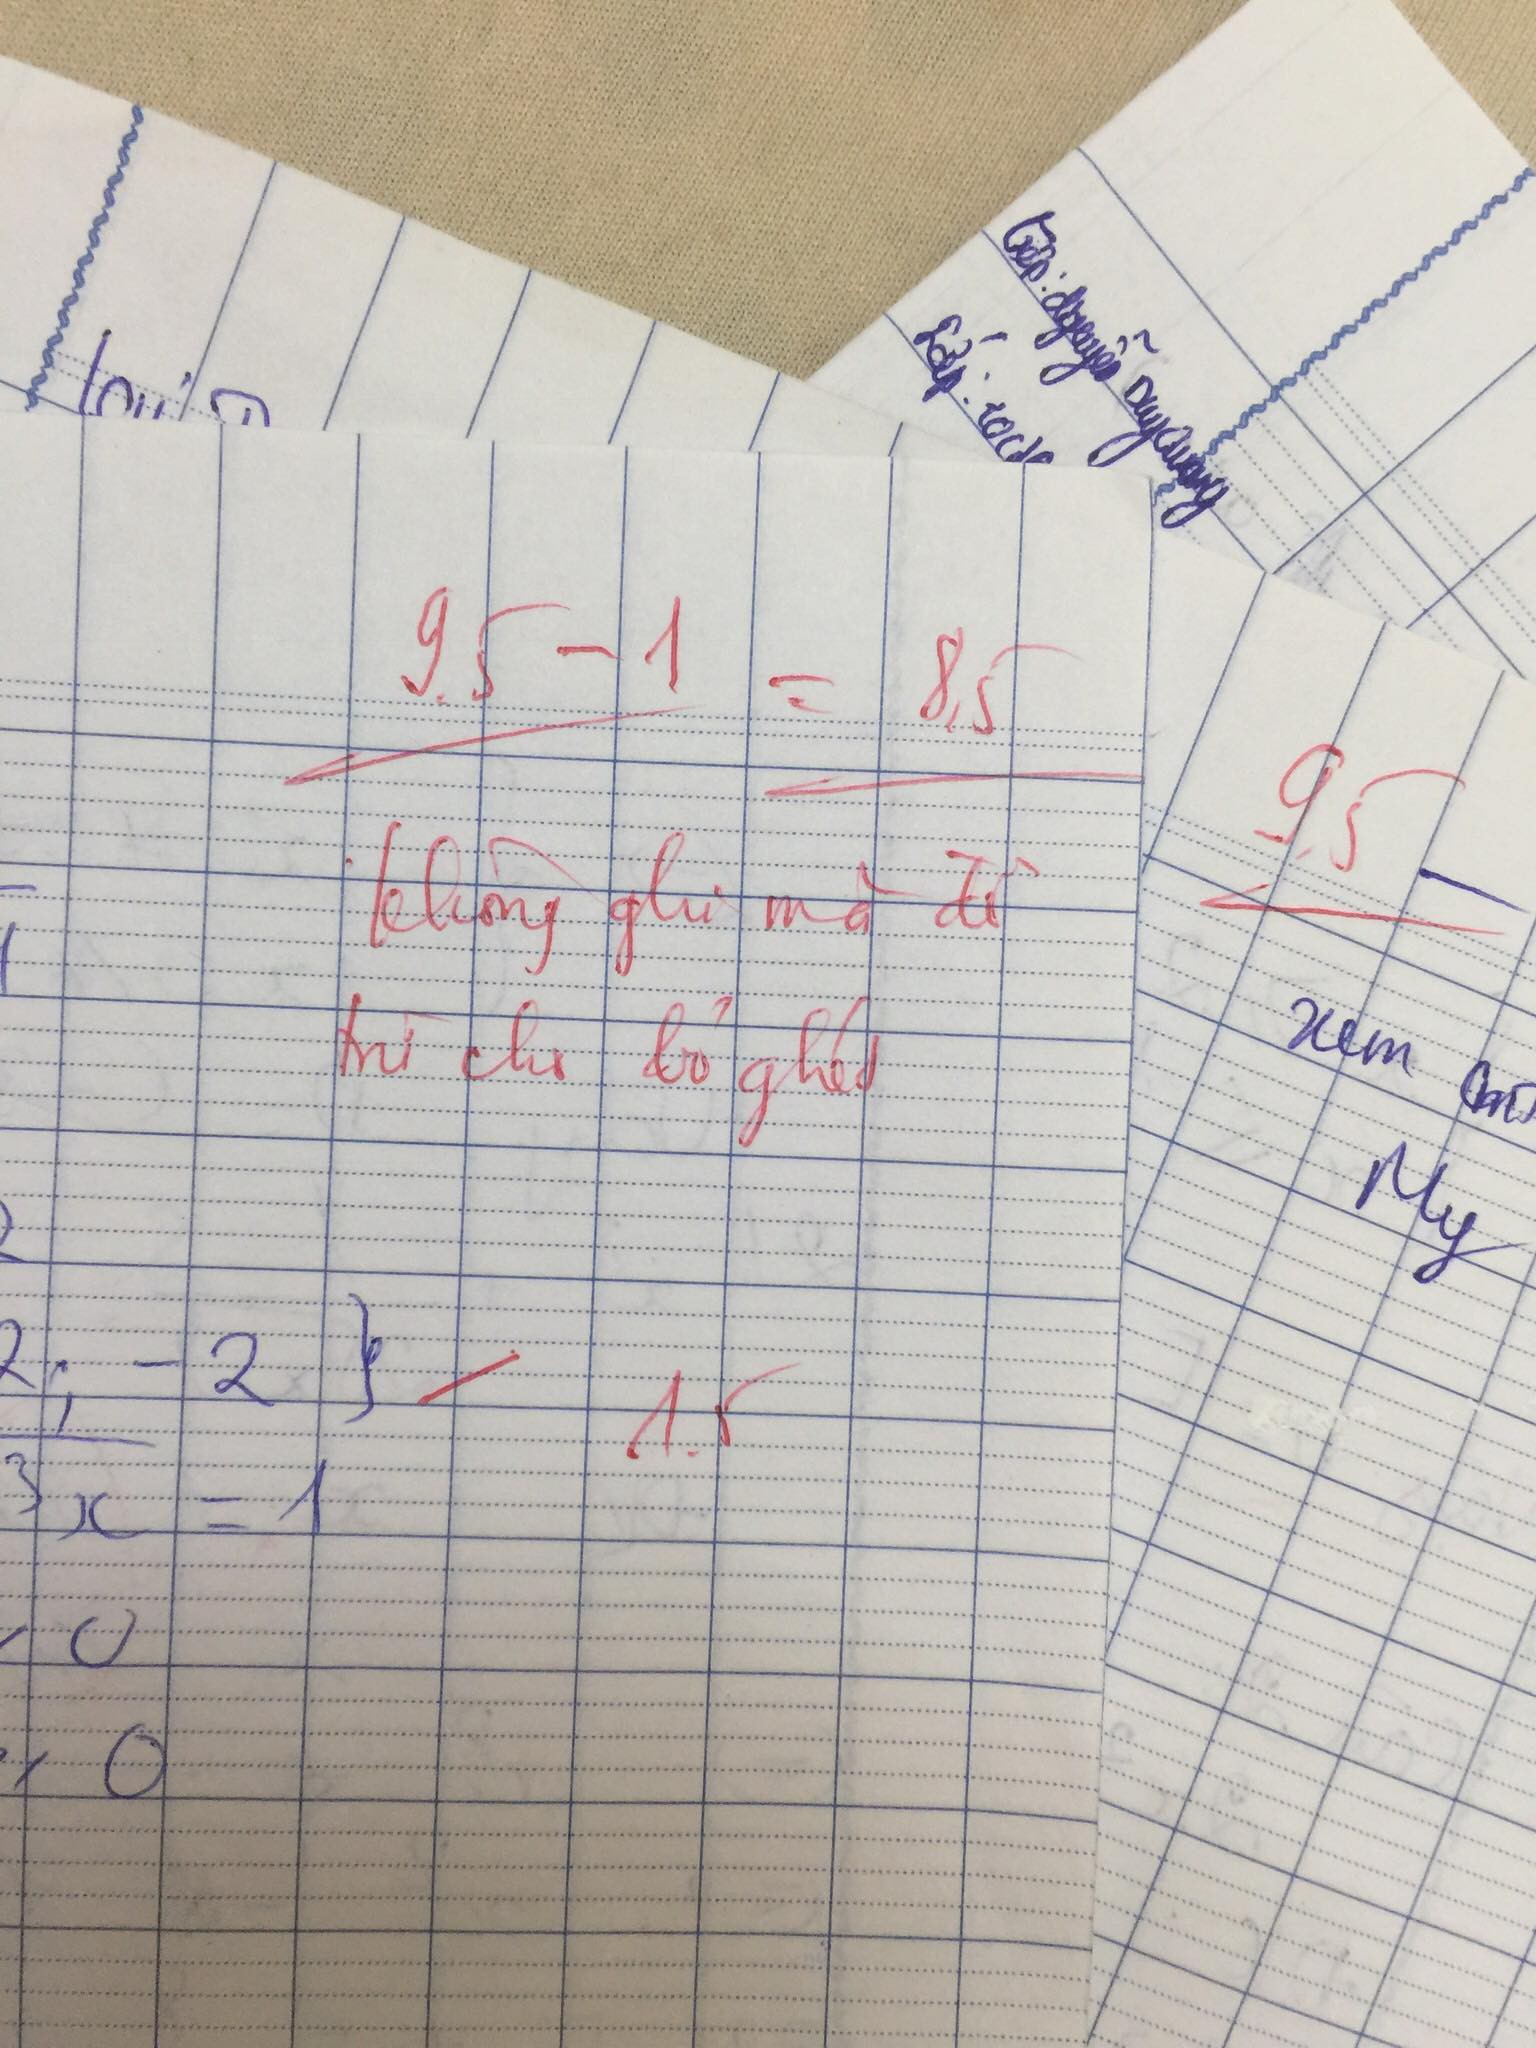 Tên: Nguyễn Duy Quang
Lớp: 10A
9.5 - 1 = 8,5
Không ghi mã đề
trừ cho bỏ ghét
9,5
xem
My
2; -2 }
1.5
3x = 1
0
0